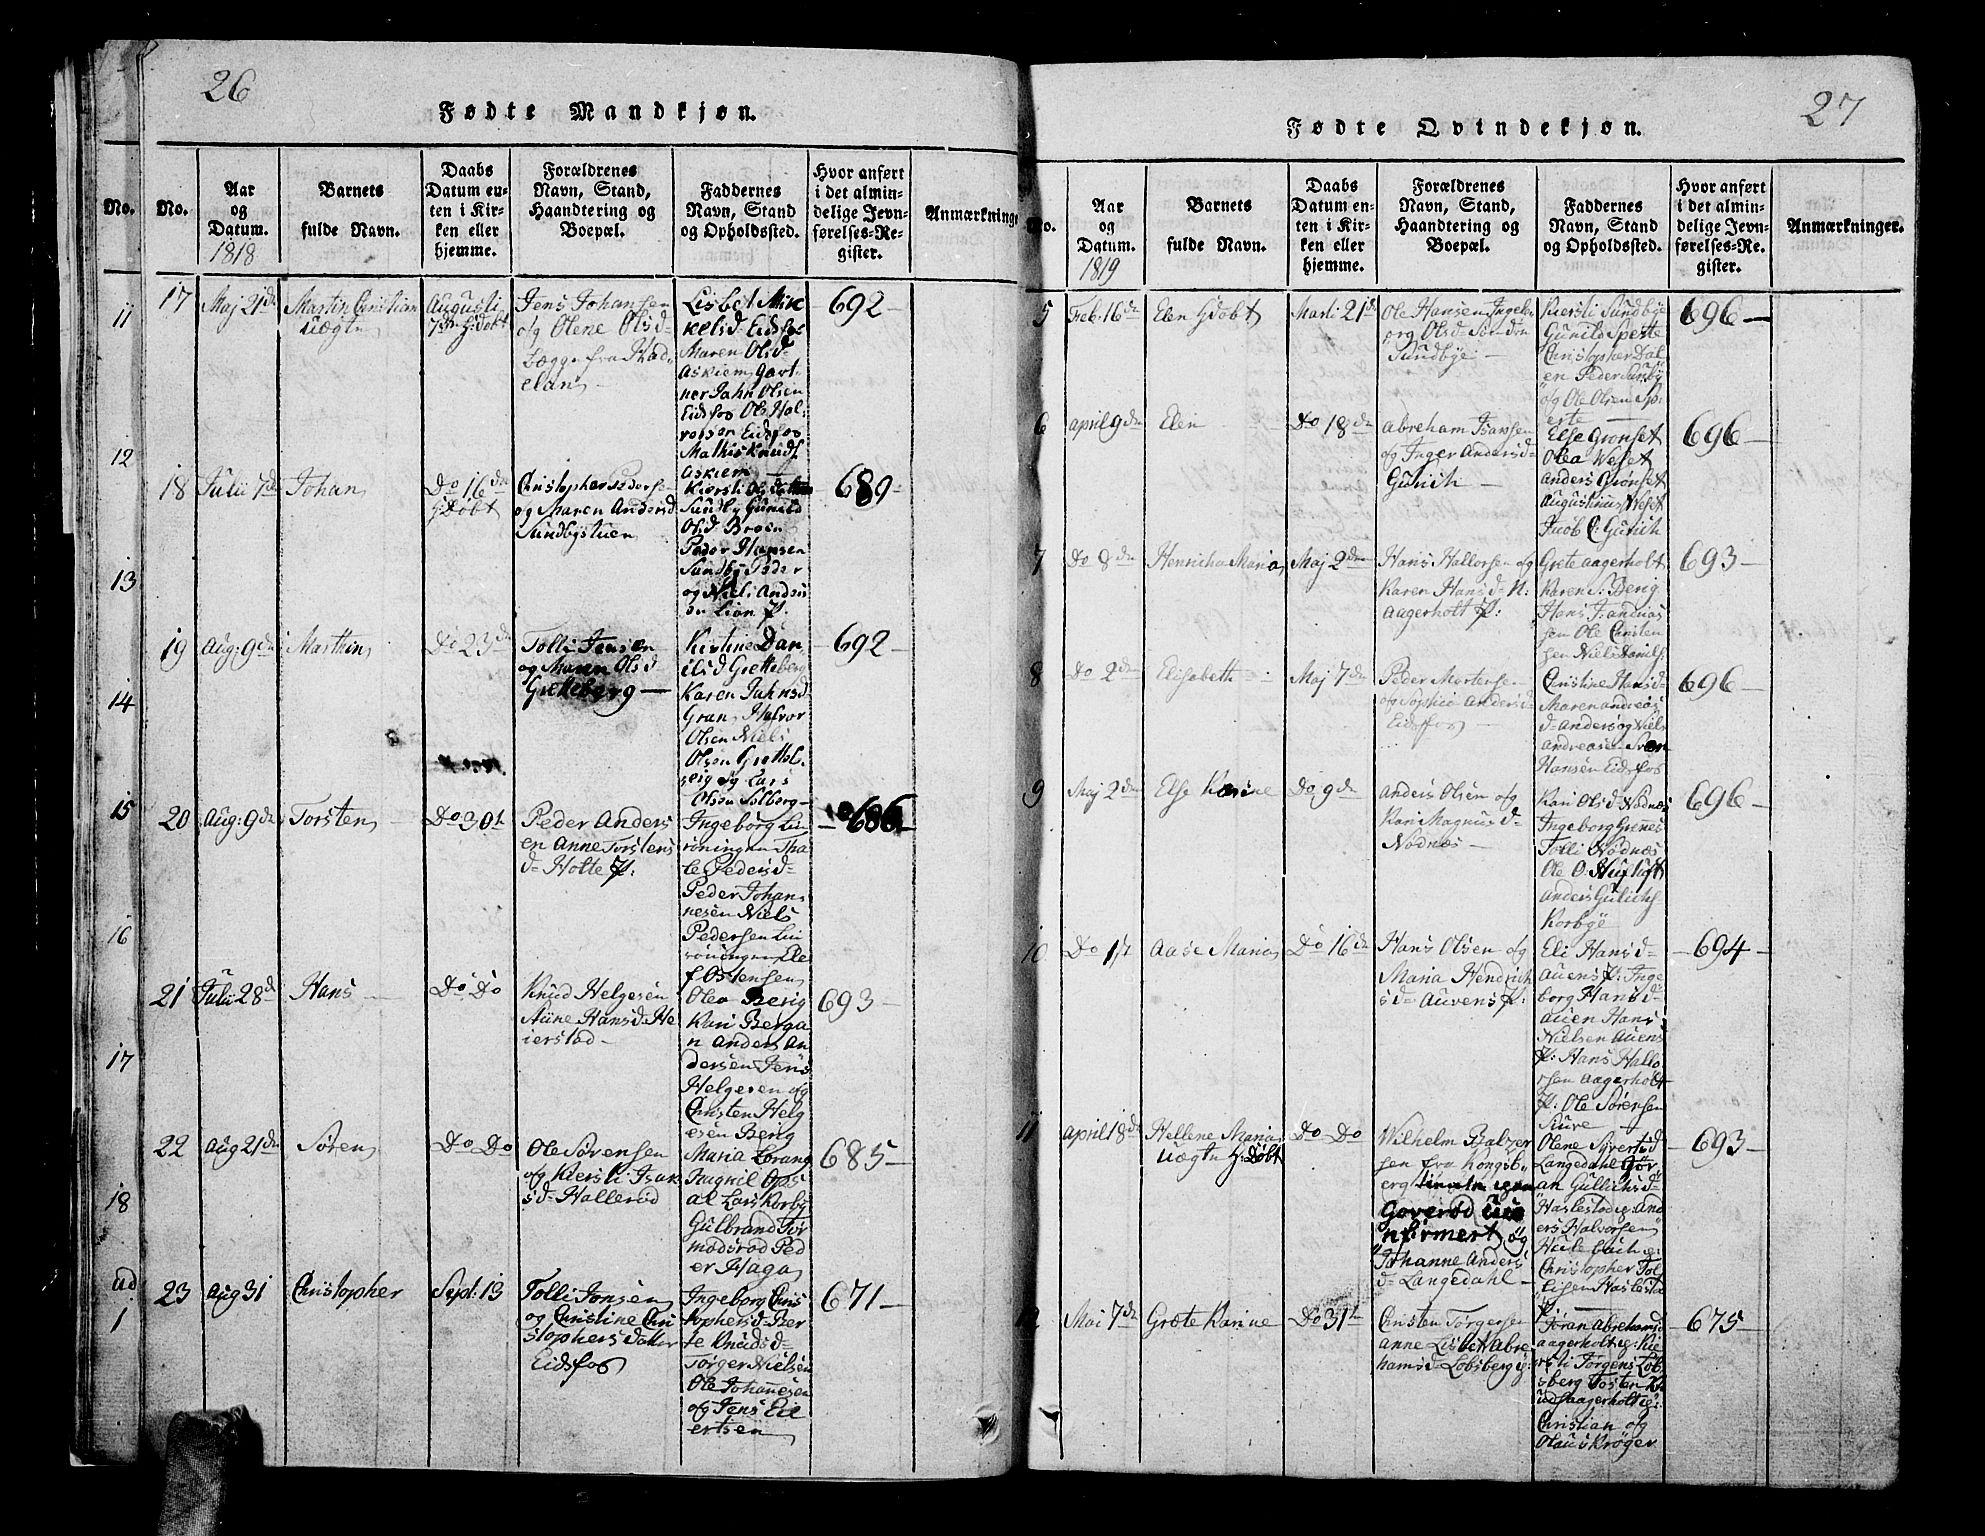 26
Fødte Mandkjøn.
No.
No.
Aar
og
Datum.
1818
Barnets
fulde Navn.
Daabs
Datum en-
ten i Kir-
ken eller
hjemme.
Forældrenes
Navn, Stand,
Haandtering og
Boepæl.
Faddernes
Navn, Stand
og Opholdssted.
Hvor anført
i det almin-
delige Jevn-
førelses-Re-
gister.
Anmærkninge
11
12
13
14
15
16
17
18
ad
1
17
Maj 21de
Martin Christian
uægte
Augusti
H:døbt
Jens Johansen
og Olene Olsd
Lægge fra Had
eland
Lisbet Mik
kelsd Eidsfos
Maren Olsd
Askiem Gart
ner Jahn Olsen
Eidsfos Ole Hal
vorsen Eidsfos
Mathis Knuds
Askiem
692
18
Julii 7de
Johan
Do 16de
H:Døbt
Christopher Pedersen
og Maren Andersd
Sundbystuen
Kiersti Olsdatter
Sundby Gunild
Olsd Broen
Peder Hansen
Sundby Peder
og Niels Anders
en Lian
689
19
Aug: 9de
Marthin
Do 23de
Tolli Jensen
og Maren Olsd
Gretteberg
Kirstine Dan
ilsd Gretteberg
Karen Jahnsd
Gran Halvor
Olsen Niels
Olsen Grettel
og Lars
Olsen Solberg
692
20
Aug: 9de
Torsten
Do 30t
Peder Anders
en Anne Torstens
d Holte
Ingeborg Lin
roningen Tha
le Pedersd
Peder Johan
nesen Niels
Pedersen Lin
roningen Ole
Ostensen
686
21
Julii 28d
Hans
Do Do
Knud Helgesen
Anne Hansd He
ierstad
Olea Berig
Kari Berga
n Anders An
dersen Jens
Helgesen og
Christen Helg
esen Berig
693
22
Aug 21de
Søren
Do Do
Ole Sørensen
og Kiersti Isak
sd Hallerød
Maria Lorang
Ingnil Ops
al Lars Korby
Gulbrand For
modsrød Ped
er Haga
685
23
Aug 31
Christopher
Sept: 13
Tolli Jonsen
og Christine Chri
stophers datter
Eidsfos
Ingeborg Chris
tophersd Ber
te Knudsd
Torger Nielsen
Ole Johannesen
og Jens Eil
ertsen
671
27
Fødte Qvindekjøn.
No.
Aar
og
Datum.
1819
Barnets
fulde Navn.
Daabs
Datum en-
ten i Kir-
ken eller
hjemme.
Forældrenes
Navn, Stand,
Haandtering og
Boepæl.
Faddernes
Navn, Stand
og Opholdssted.
Hvor anført
i det almin-
delige Jevn-
førelses-Re-
gister.
Anmærkninger.
5
Feb: 16de
Elen H:døbt
Marti 21de
Ole Hansen Ingeb
org Olsd Søndre
Sundbye
Kiersti Sundbye
Gunild Sperte
Christopher Dal
en Peder Sundby
og Ole Olsen Sp
erte
696
6
April 9de
Elen
Do 18de
Abraham Isansen
og Inger Andersd
Gunich
Else Gronset
Olea Weset
Anders Gronset
Augustinus Weset
Jacob C: Gunich
696
7
Do 8de
Henricha Maria
Maj 2de
Hans Hallorsen og
Karen Hansd N:
Aagerholt
Grete Aagerholt
Karen S: Berig
Hans J: Andreas
sen Ole Christen
sen Niels Daniels
693
8
Do 2de
Elisabeth
Maj 7de
Peder Mortensen
og Sophie Andersd
Eidsfos
Christine Hansd
Maren Andreas
d Anders og Niels
Andreasen Sven
Hansen Eidsfos
696
9
Maj 2de
Else Karine
Do 9de
Anders Olsen og
Kari Magnusd
Nødnæs
Kari Olsd Nødnæs
Ingeborg Grennes
Tolli Nødnæs
Ole O: Hugluft
Anders Gulichs
Korbye
696
10
Do 1st
Aase Maria
Do 16de
Hans Olsen og
Maria Hendrich
sd Auvens
Eli Hansd
Auens Inge
borg Hansd
Auen Hans
Nielsen Auens
Hans Hallo
rsen Aagerholt
Ole Sørensen
Sure
694
11
April 18de
Hellene Maria
uægte H:Døbt
Do Do
Wilhelm Balzer
sen fra Kongsb
erg
Goverød
nfirmert og
Johanne Anders
d Langedahl
Olene Syvertsd
Langedahl Gør
an Gullichsd
Haslestad eg: And
ers Halvorsen
Hulebach eg:
Christopher Tol
lefsen Haslestad
693
12
Mai 7de
Grete Karine
Do 31t
Christen Torgersen
Anne Lisbet Abra
hamsd Løbsberg eg:
Jøran Abrahamsd
Aagerholt eg: Kie
rsti Jørgens Løb
sberg Tosten Kn
uds Aagerholt eg:
Christian og
Olaus Krøger
675